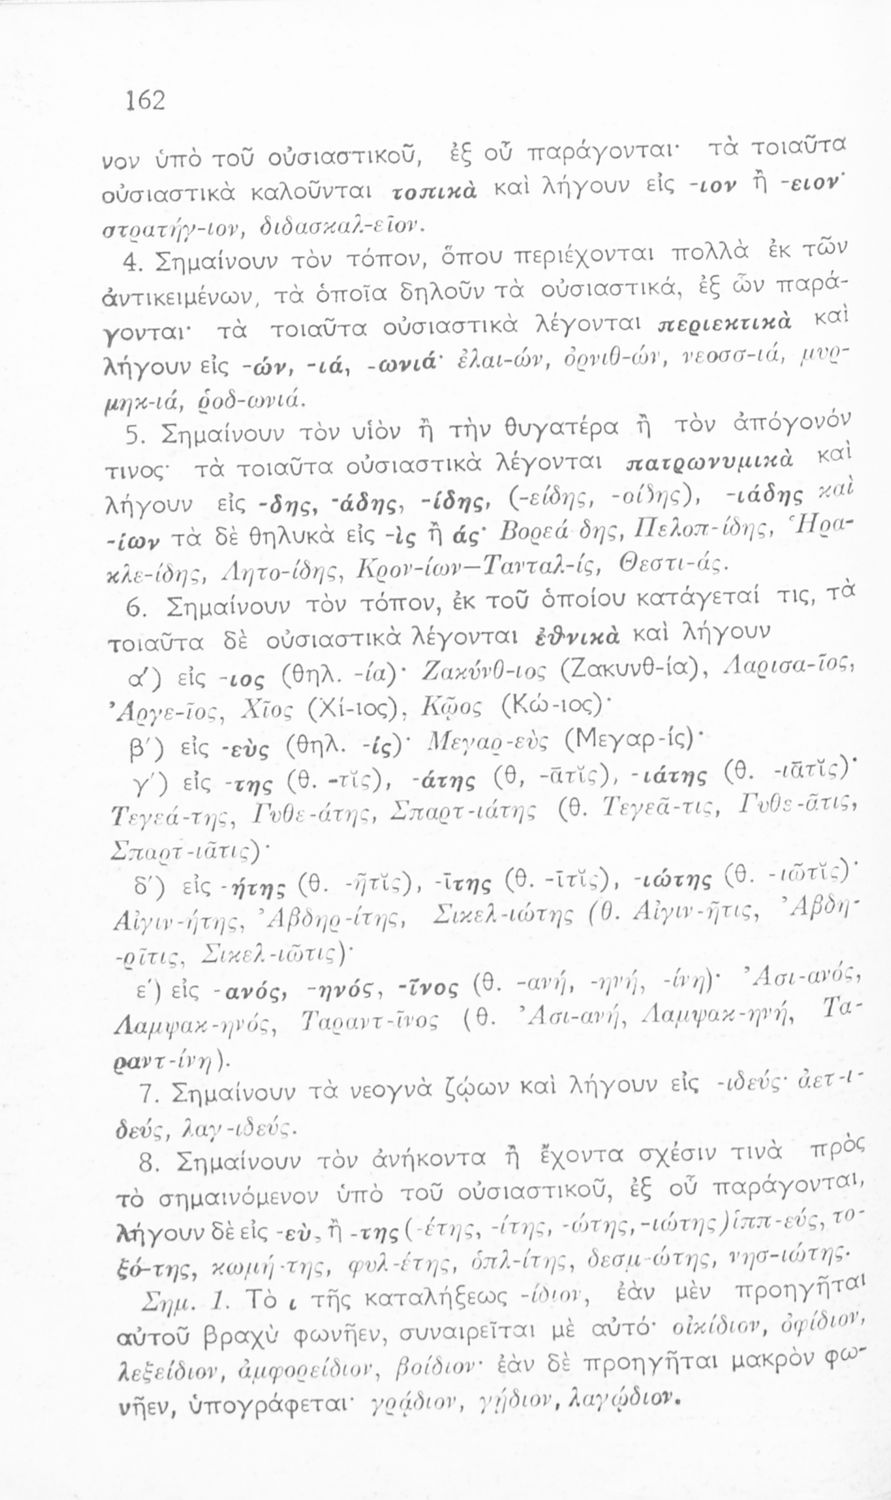 162
νον ὑπὸ τοῦ οὐσιαστικοῦ, ἐξ οὗ παράγονται· τὰ τοιαῦτα
οὐσιαστικὰ καλοῦνται τοπικὰ καὶ λήγουν εἰς -ιον ἢ -ειον·
στρατήγ-ιον, διδασκαλ-εῖον.
4. Σημαίνουν τὸν τόπον, ὅπου περιέχονται πολλὰ ἐκ τῶν
ἀντικειμένων, τὰ ὁποῖα δηλοῦν τὰ οὐσιαστικά, ἐξ ὧν παρά-
γονται· τὰ τοιαῦτα οὐσιαστικὰ λέγονται περιεκτικὰ καὶ
λήγουν εἰς -ών, -ιά, -ωνιά· ἐλαι-ών, ὀρνιθ-ών, νεοσσ-ιά, μυρ-
μηκ-ιά, ῥοδ-ωνιά.
5. Σημαίνουν τὸν υἱὸν ἢ τὴν θυγατέρα ἢ τὸν ἀπόγονόν
τινος· τὰ τοιαῦτα οὐσιαστικὰ λέγονται πατρωνυμικὰ καὶ
λήγουν εἰς -δης, -άδης, -ίδης, (-είδης, -οίδης), -ιάδης καὶ
-ίων τὰ δὲ θηλυκὰ εἰς -ὶς ἢ άς· Βορεά δης, Πελοπ-ίδης, Ἡρα-
κλε-ίδης, Λητο-ίδης, Κρον-ίων—Τανταλ-ίς, Θεστι-άς.
6. Σημαίνουν τὸν τόπον, ἐκ τοῦ ὁποίου κατάγεταί τις, τὰ
τοιαῦτα δὲ οὐσιαστικὰ λέγονται ἐθνικὰ καὶ λήγουν
α′) εἰς -ιος (θηλ. -ία)· Ζακύνθ-ιος (Ζακυνθ-ία), Λαρισα-ῖος,
Ἀργε-ῖος, Χῖος (Χί-ιος), Κῷος (Κώ-ιος)·
β′) εἰς -εὺς (θηλ. -ίς)· Μεγαρ-εὺς (Μεγαρ-ίς)·
γ′) εἰς -της (θ. -τῐς), -άτης (θ, -ᾶτῐς), -ιάτης (θ. -ιᾶτῐς)·
Τεγεά-της, Γυθε-άτης, Σπαρτ-ιάτης (θ. Τεγεᾶ-τις, Γυθε-ᾶτις,
Σπαρτ-ιᾶτις)·
δ′) εἰς -ήτης (θ. -ῆτῐς), -ῑτης (θ. -ῖτῐς), -ιώτης (θ. -ιῶτῐς)·
Αἰγιν-ήτης, Ἀβδηρ-ίτης, Σικελ-ιώτης (θ. Αἰγιν-ῆτις, Ἀβδη-
-ρῖτις, Σικελ-ιῶτις)·
ε′) εἰς -ανός, -ηνός, -ῖνος (θ. -ανή, -ηνή, -ίνη)· Ἀσι-ανός,
Λαμψακ-ηνός, Ταραντ-ῖνος (θ. Ἀσι-ανή, Λαμψακ-ηνή, Τα-
ραντ-ίνη).
7. Σημαίνουν τὰ νεογνὰ ζῴων καὶ λήγουν εἰς -ιδεύς· ἀετ-ι-
δεύς, λαγ-ιδεύς.
8. Σημαίνουν τὸν ἀνήκοντα ἢ ἔχοντα σχέσιν τινὰ πρὸς
τὸ σημαινόμενον ὑπὸ τοῦ οὐσιαστικοῦ, ἐξ οὗ παράγονται,
λήγουν δὲ εἰς -εὺ, ἢ -της (-έτης, -ίτης, -ώτης, -ιώτης) ἱππ-εύς, το-
ξό-της, κωμή-της, φυλ-έτης, ὁπλ-ίτης, δεσμ-ώτης, νησ-ιώτης.
Σημ. 1. Τὸ ι τῆς καταλήξεως -ίδιον, ἐὰν μὲν προηγῆται
αὐτοῦ βραχὺ φωνῆεν, συναιρεῖται μὲ αὐτό· οἰκίδιον, ὀφίδιον,
λεξείδιον, ἀμφορείδιον, βοίδιον· ἐὰν δὲ προηγῆται μακρὸν φω-
νῆεν, ὑπογράφεται· γρᾴδιον, γῄδιον, λαγῴδιον.